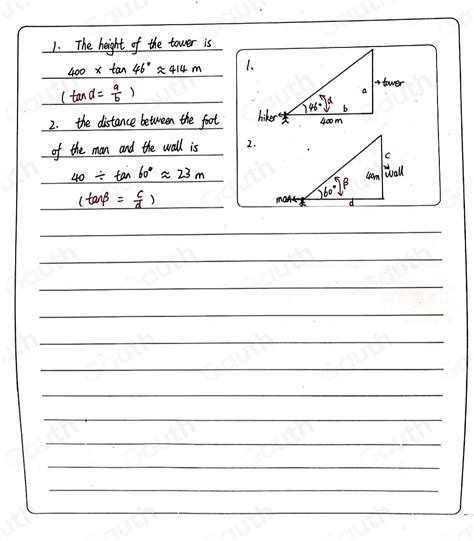 1. The height of the tower is
400 × tan 46° ≈ 414 m
( tan α = a/b )
2. the distance between the foot
of the man and the wall is
40 ÷ tan 60° ≈ 23 m
( tan β = c/d )
1.
a
→ tower
46°
α
b
hiker
400m
2.
c
40m
wall
60°
β
man
d
Gauth